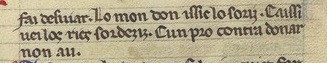 fai desuiar. Lo mon don issic lo sorz. Caissi
uei los rics sordezir. Cun pro contra donar
non au.